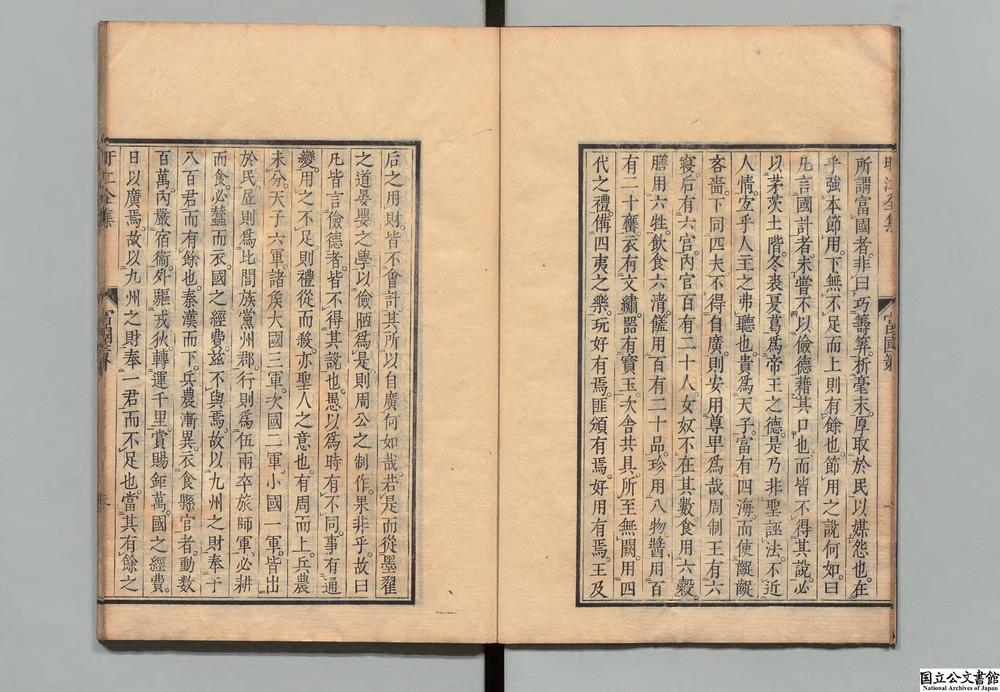 所謂富國者非曰巧籌筭析毫末厚取於民以媒怨也在
乎強本節用下無不足而上則有餘也節用之說何如曰
凡言國計者未嘗不以儉德藉其口也而皆不得其說必
以茅茨土階冬裘夏葛爲帝王之德是乃非聖誣法不近
人情宜乎人主之弗聽也貴爲天子富有四海而使齷齪
吝嗇下同匹夫不得自廣則安用尊卑爲哉周制王有六
寢后有六宮內官百有二十人女奴不在其數食用六穀
膳用六牲飲食六清羞用百有二十品珍用八物醬用百
有二十罋衣有文繡器有寳玉次舍共具所至無闕用四
代之禮僃四夷之樂玩好有焉匪頒有焉好用有焉王及
后之用財皆不會計其所以自廣何如哉若是而從墨翟
之道晏嬰之學以儉陋爲是則周公之制作果非乎故曰
凡皆言儉德者皆不得其說也愚以爲時有不同事有通
變用之不足則禮從而殺亦聖人之意也有周而上兵農
未分天子六軍諸侯大國三軍次國二軍小國一軍皆出
於民居則爲比閭族黨州鄉行則爲伍兩卒旅師軍必耕
而食必蠶而衣國之經費兹不與焉故以九州之財奉于
八百君而有餘也秦漢而下兵農漸異衣食縣官者動數
百萬內嚴宿衞外驅戎狄轉運千里賞賜鉅萬國之經費
日以廣焉故以九州之財奉一君而不足也當其有餘之
富國策
国立公文書館
National Archives of Japan